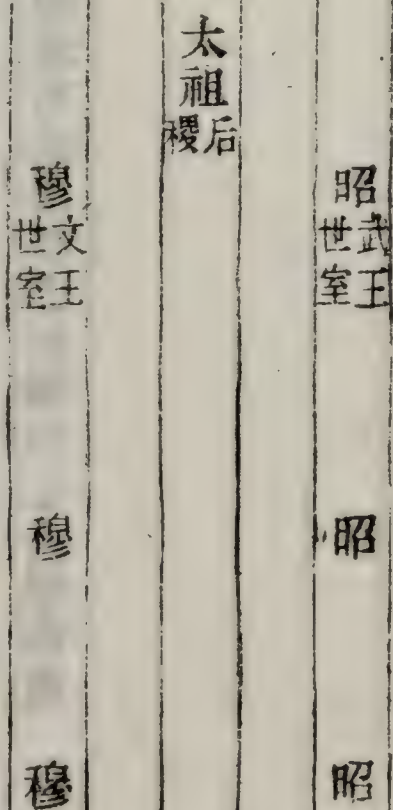 昭 武王世室 昭 昭
太祖 后稷
穆 文王世室 穆 穆